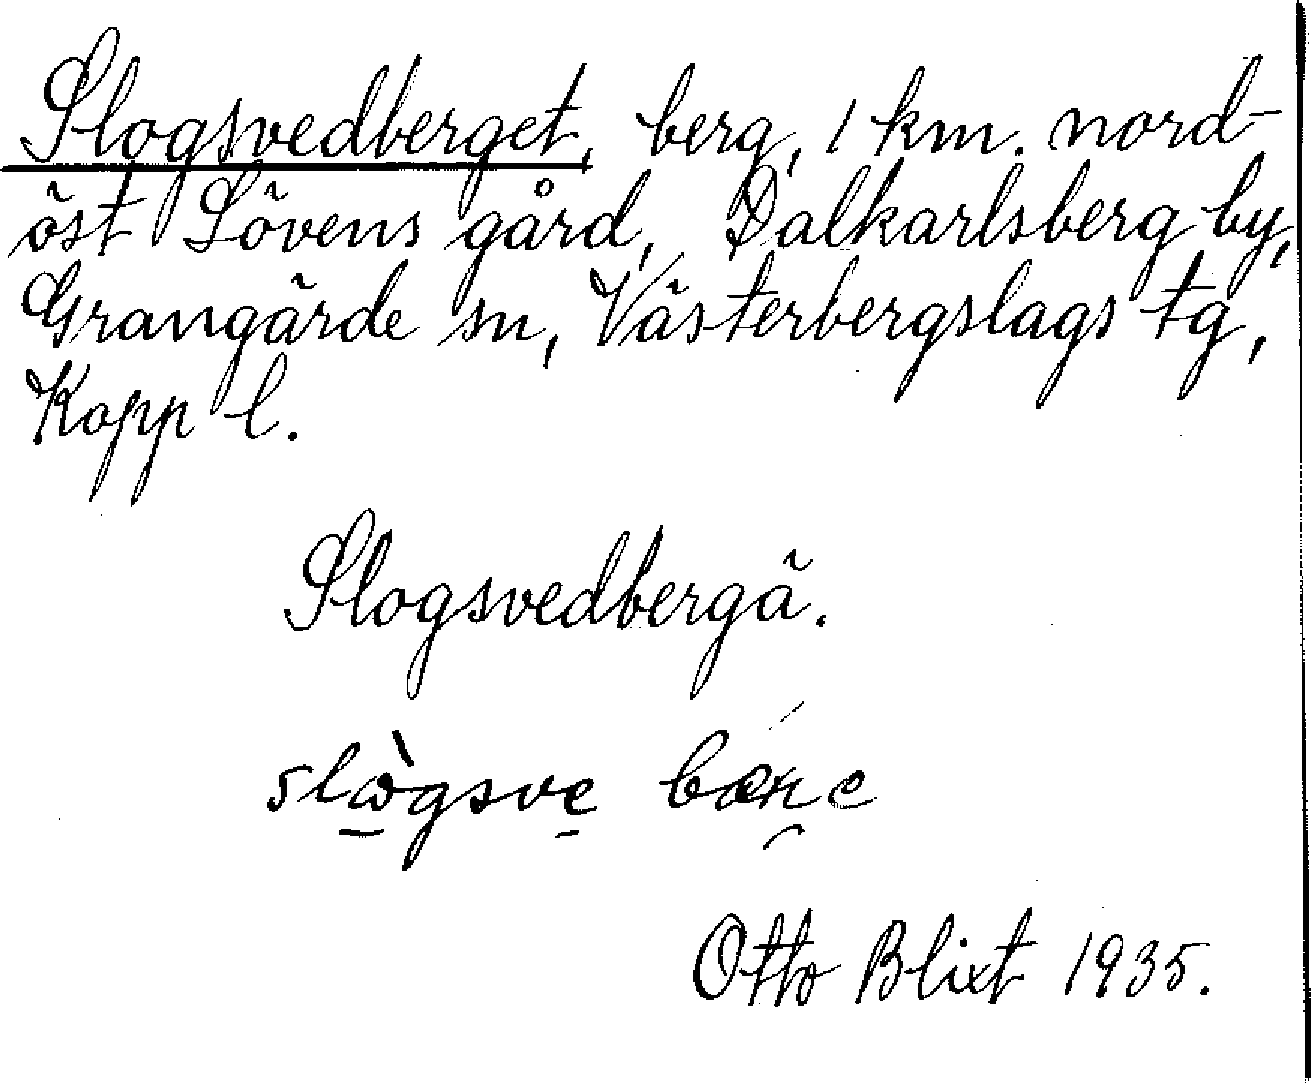 Slogsvedberget, berg, 1 km. nord-
öst Lövens gård, Dalkarlsberg by,
Grangärde sn, Västerbergslags tg,
Kopp l.
Slogsvedbergä.
Otto Blixt 1935.